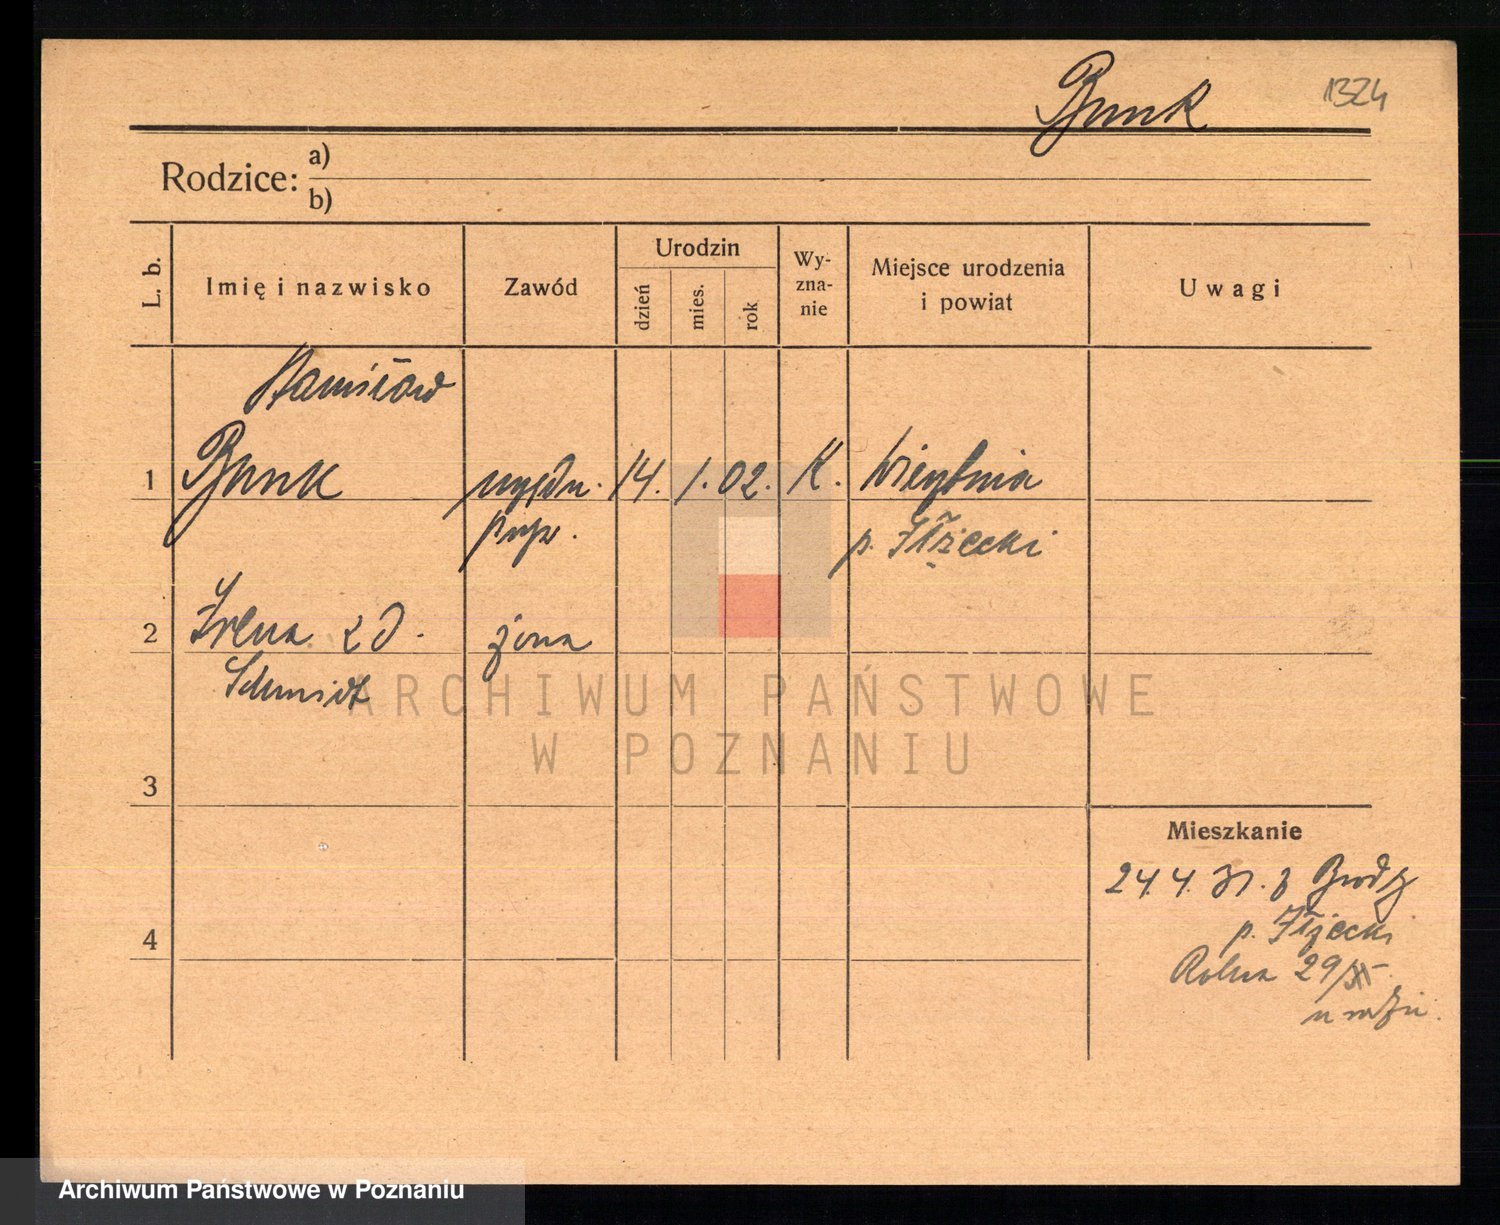 Bunk 1324
Rodzice: a)
b)
L. b. Imię i nazwisko Zawód Urodzin dzień mies. rok Wy-zna-nie Miejsce urodzenia i powiat Uwagi
Stanisław
1 Bunk 14. 1. 02. K.
p. Iłżecki
2 Irena z d. żona
Schmidt
3
4
Mieszkanie
24. 4. 31. z
p. Iłżecki
Rolna 29
ARCHIWUM PAŃSTWOWE
W POZNANIU
Archiwum Państwowe w Poznaniu